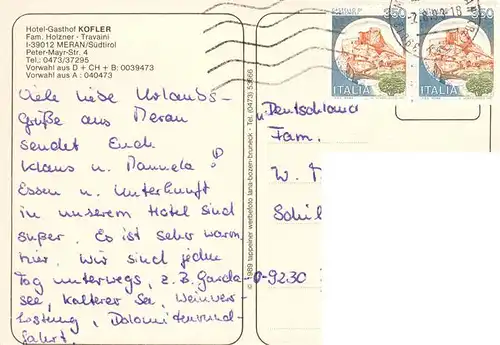 Hotel-Gasthof KOFLER
Fam. Holzner - Travaini
I-39012 MERAN/Südtirol
Peter-Mayr-Str. 4
Tel.: 0473/37295
Vorwahl aus D + CH + B: 0039473
Vorwahl aus A : 040473
Viele liebe Urlaubs-
grüße aus Meran
sendet Euch
Klaus u. Manuela!
Essen u. Unterkunft
in unserem Hotel sind
super. Es ist sehr warm
hier. Wir sind jeden
Tag unterwegs, z.B. Garda-
see, Kalterer See, Weinver-
kostung, Dolomitenrund-
fahrt.
© 1989 tappeiner werbefoto lana-bozen-bruneck - Tel. (0473)
350 350
ITALIA ITALIA
Deutschland
Fam.
W. T
Schil
D-9230